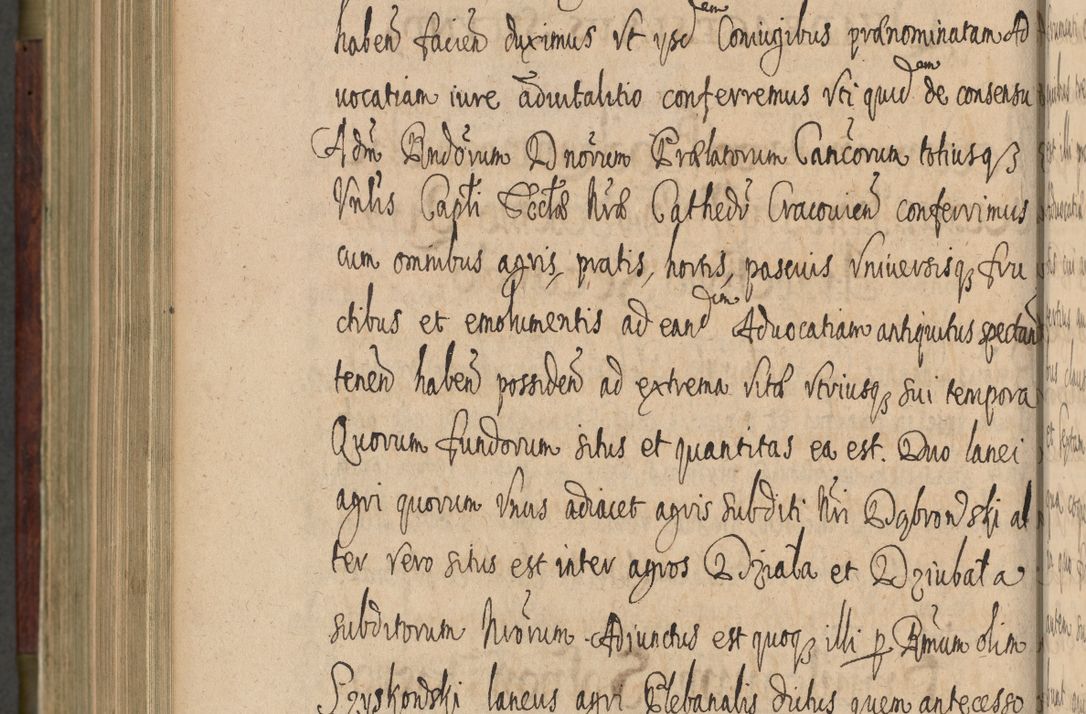 haben̄ facien̄ duximus vt ysdem Coniugibus prænominatam Ad
uocatiam iure āduitalitio conferremus vti quidem de consensu
Adm̄ Rndōrum Dnōrum Prælatorum Canc̄orum totiusqȝ
Vnlīs Caplī Eccłæ Nr̄æ Cathedr̄ Cracouien̄ conferrimus
cum omnibus agris, pratis, hortis, pascuis vniuersisqȝ fru
ctibus et emolumentis ad eandem Aduocatiam antiquitus spectan̄
tenen̄ haben̄ possiden̄ ad extrema vitæ vtriusqȝ sui tempora
Quorum fundorum situs et quantitas ea est. Duo lanei
agri quorum vnus adiacet agris subditi Nr̄i Dąbrowski al
ter vero situs est inter agros Działa et Dziubała
subditorum Nrōrum. Adiunctus est quoqȝ illi p Rm̄um olim
Szyskowski laneus agri Plebanalis dictus quem antecesso